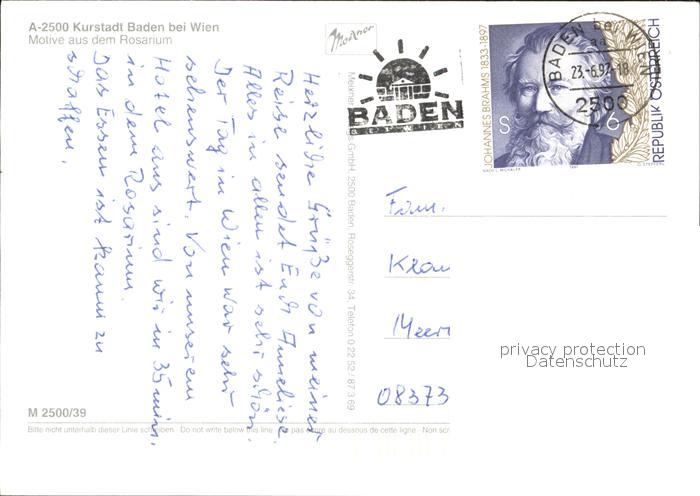 A-2500 Kurstadt Baden bei Wien
Motive aus dem Rosarium
Herzliche Grüße von meiner
Reise sendet Euch Anneliese.
Alles in allen ist sehr schön.
Der Tag in Wien war sehr
sehenswert. Von unserem
Hotel aus sind wir in 35 min.
in dem Rosarium.
Das Essen ist kaum zu
schaffen.
M 2500/39
Bitte nicht unterhalb dieser Linie schreiben · Do not write below this line · pas écrire au dessous de cette ligne · Non scr
GmbH, 2500 Baden, Roseggerstr. 34, Telefon 0 22 52 / 87 3 69
BADEN
BEI WIEN
JOHANNES BRAHMS 1833-1897
S 6
REPUBLIK ÖSTERREICH
1997
BADEN bei WIEN
23.-6.97-18
2500
Fam.
Klau
Meer
08373
privacy protection
Datenschutz